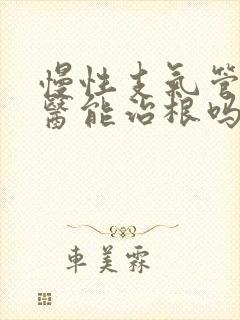 慢性支氣管
醫能治根嗎
車美霖